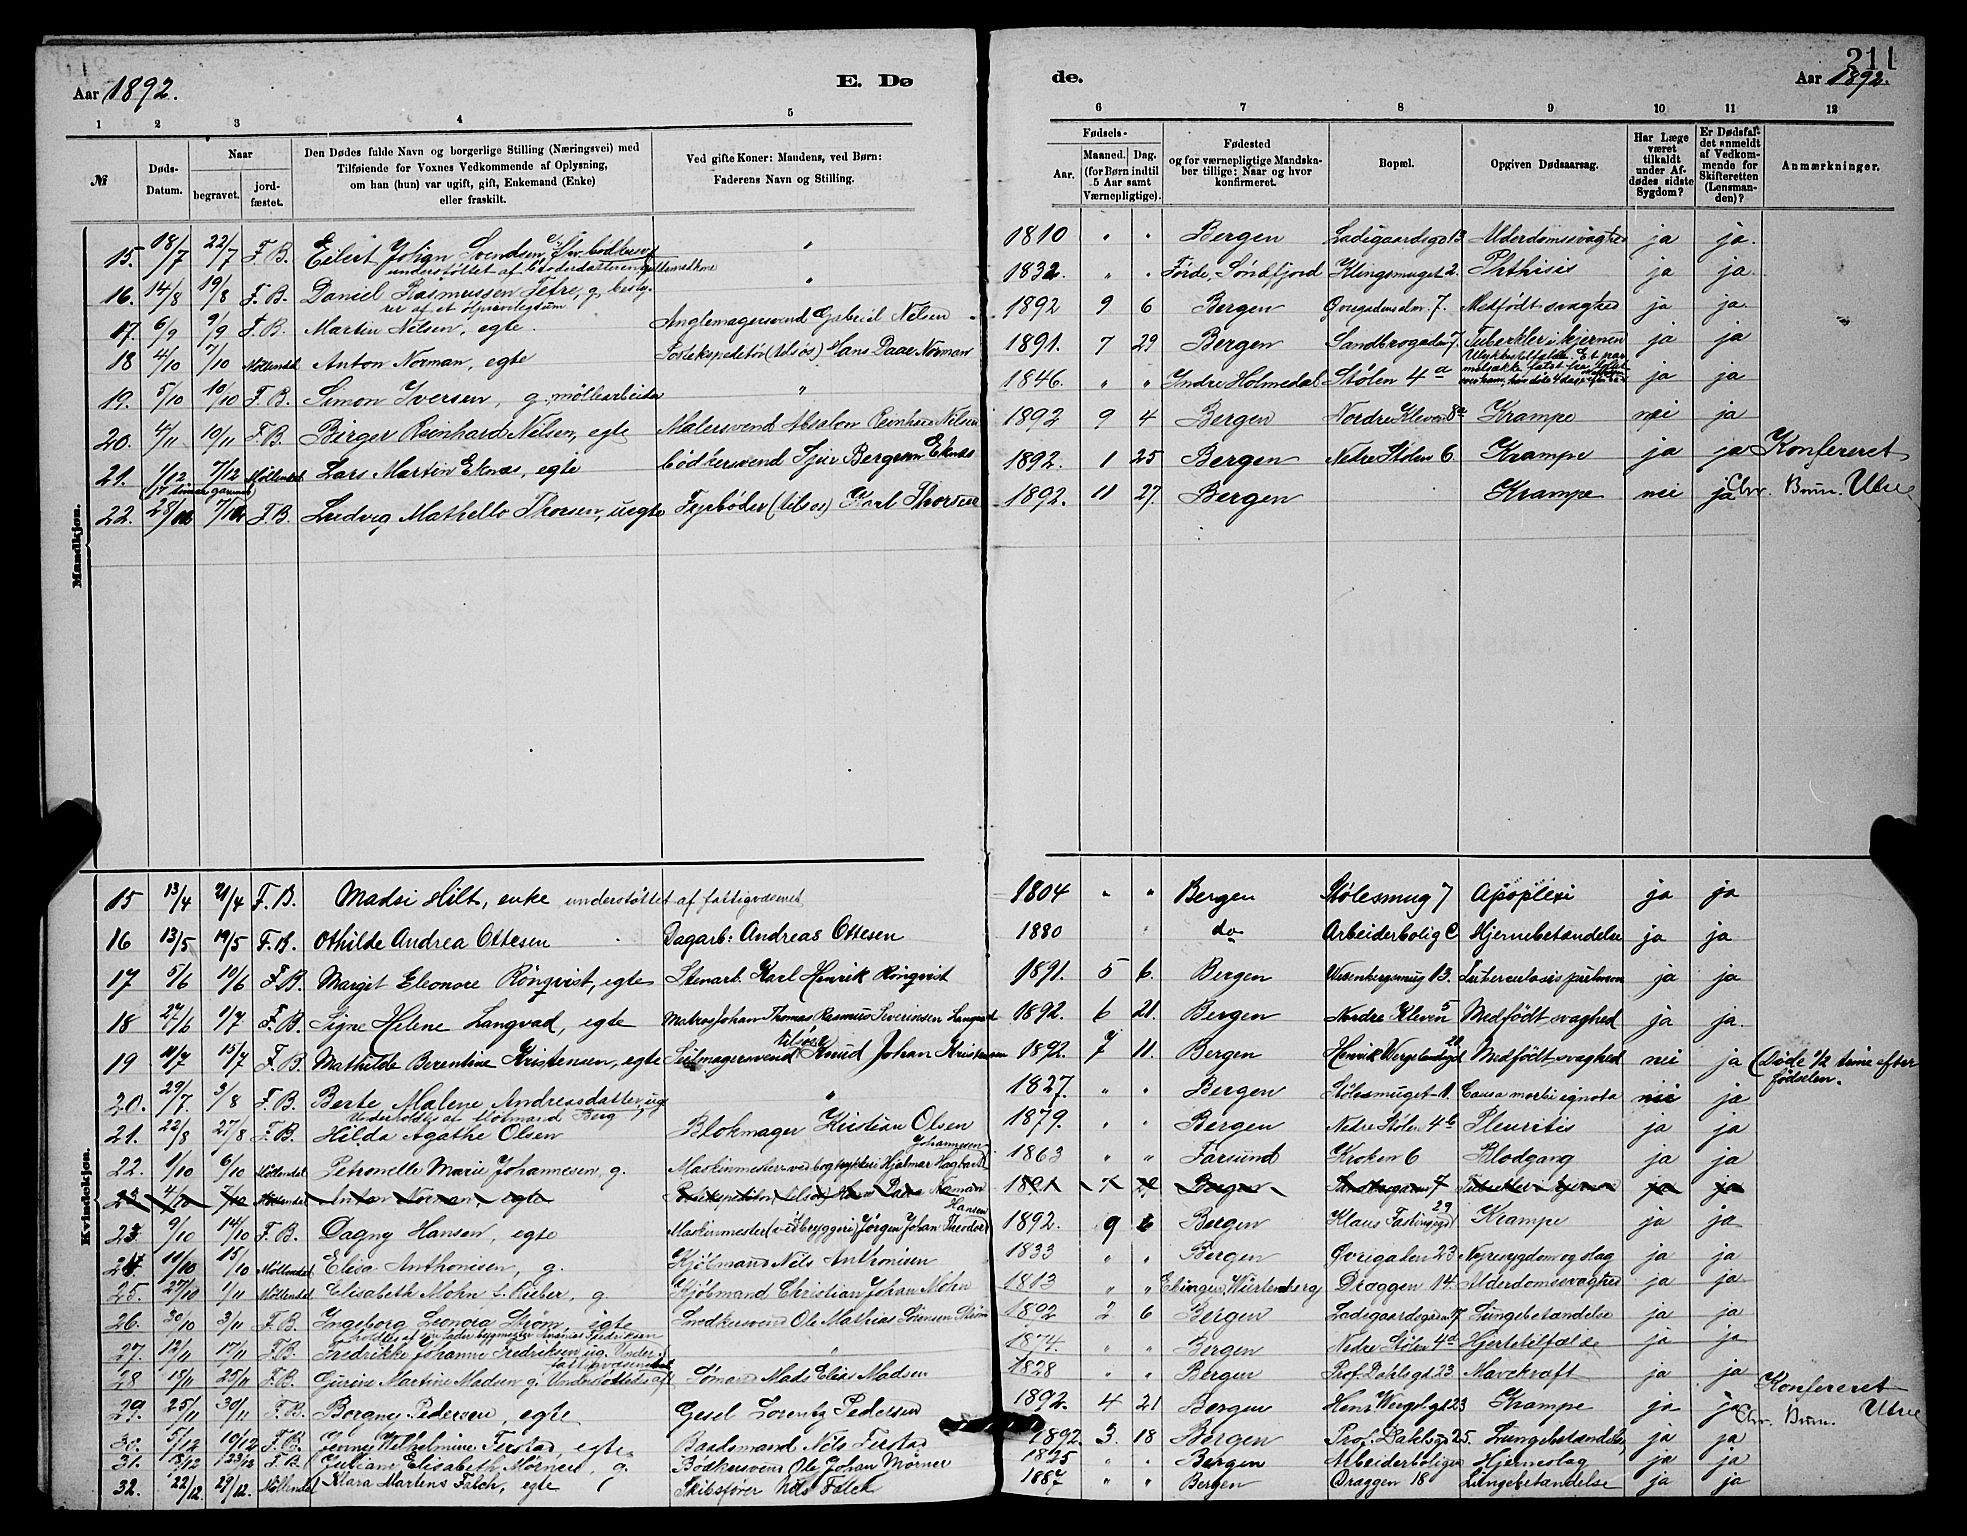 211
Aar 1892. E. Dø de. Aar 1892.
1 2 3 4 5 6 7 8 9 10 11 12
№ Døds-Datum. Naar begravet. jordfæstet. Den Dødes fulde Navn og borgerlige Stilling (Næringsvei) med Tilføiende for Voxnes Vedkommende af Oplysning, om han (hun) var ugift, gift, Enkemand (Enke) eller fraskilt. Ved gifte Koner: Mandens, ved Børn: Faderens Navn og Stilling. Fødsels- Aar. Maaned. Dag. (for Børn indtil 5 Aar samt Værnepligtige). Fødested og for værnepligtige Mandskaber tillige: Naar og hvor konfirmeret. Bopæl. Opgiven Dødsaarsag. Har Læge været tilkaldt under Afdødes sidste Sygdom? Er Dødsfaldet anmeldt af Vedkommende for Skifteretten (Lensmanden)? Anmærkninger.
Mandkjøn.
15. 18/7 22/7 F.B. Eilert Svendsen, understøttet af 1810 " " Bergen Ladegaardsgd 13 Alderdomssvaghed ja ja.
16. 14/8 19/8 F.B. Daniel Rasmussen g. 1832. " " Førde, Søndfjord Klingsmuget 2. Phthisis ja ja.
17. 6/9 9/9 F.B. Martin Nilsen, egte. Anglemagersvend Gabriel Nilsen 1892 9 6 Bergen 7. Medfödt svaghed ja ja.
18 4/10 7/10 Møllendal Anton Norman, egte Postekspeditör (tilsös) Hans Daae Norman 1891. 7 29 Bergen Sandbrogaden 7. Tuberkler i hjernen ja ja
19. 5/10 10/10 F.B. Simon Iversen, g. möllearbeider " 1846. " " Yndre Holmedal Stölen 4a ja ja
20. 4/11 10/11 F.B. Birger Reinhard Nilsen, egte Malersvend Absalon Reinhard Nilsen 1892 9 4 Bergen Nordre Kleven 8a Krampe nei ja
21. 1/12 7/12 Møllendal Lars Martin Eknæs, egte Bödkersvend Bergesen Eknæs 1892. 1 25 Bergen Nedre Stölen 6 Krampe ja ja Konfereret
22. F.B. Ludvig Mathello Thorsen, uegte Fyrböder (tilsös) Karl Thorsen 1892. 11 27. Bergen Krampe nei ja Chr. Brun. Utne
Kvindekjøn.
15 13/4 21/4 F.B. Madsi Hilt, enke understöttet af fattigvæsenet 1804 " " Bergen Stölesmug 7 Apoplexi ja ja
16 13/5 19/5 F.B. Othilde Andrea Ottesen Dagarb: Andreas Ottesen 1880 " do Arbeiderbolig C Hjernebetændelse ja ja
17 5/6 10/6 F.B. Margit Eleonore Rönqvist, egte Stenarb. Karl Henrik Rönqvist 1891. 5 6. Bergen Wesenbergsmug 13. Tuberculosis pulmonum ja ja
18 27/6 1/7 F.B. Signe Helene Langvad, egte Matros Johan Thomas Rasmus Severinsen Langvad 1892. 6 21. Bergen Nordre Kleven 5 Medfödt svaghed ja ja.
19 11/7 15/7 F.B. Mathilde Berentine Kristensen, egte Seilmagersvend tilsös Knud Johan Kristensen 1892. 7 11. Bergen Henrik Wergelandsgd 20 Medfödt svaghed nei ja (Döde 1/2 time efter födselen.
20. 29/7 3/8 F.B. Berte Malene Andreasdatter, ug. Understöttes af Kjöbmand Berg " 1827. " " Bergen Stölesmuget 1. Causa morbi ignota nei ja
21. 22/8 27/8 F.B. Hilda Agathe Olsen Blokmager Kristian Olsen 1879. " " Bergen Nedre Stölen 4b Pleuritis ja ja
22. 1/10 6/10 Møllendal Petronelle Marie Johannesen, g. Maskinmester ved bogtrykkeri Hjalmar Hagbart Johannesen 1863 " " Farsund Kroken 6 Blodgang ja ja
23 4/10 7/10 Møllendal Anton Norman, egte Postekspeditör (tilsös) Hans Daae Norman 1891 7 Bergen Sandbrogaden 7 Tuberkler i hjernen ja ja
23. 9/10 14/10 F.B. Dagny Hansen, egte Maskinmester (ved ölbryggeri) Jörgen Johan Theodor Hansen 1892. 9 6 Bergen Klaus Fastingsgd 29 Krampe ja ja
24. 11/10 15/10 Møllendal Elisa Anthonisen, g. Kjöbmand Nils Anthonisen 1833 " " Bergen Øvregaten 23 Nyresygdom og slag ja ja
25. 27/10 1/11 Møllendal Elisabeth Mohn f. Rieber, g. Kjöbmand Christian Johan Mohn 1813 " " Ebingen, Würtemberg Dræggen 14. Alderdomssvaghed ja ja
26. 30/10 3/11 F.B. Ingeborg Leonora Ström, egte Smedkersvend Ole Mathias Sörensen Ström 1892 2 6 Bergen Ladegaardsgaden 17 Lungebetændelse ja ja
27. 12/11 17/11 F.B. Fredrikke Johanne Fredriksen, ug. " " Bergen Nedre Stölen 4d Hjertetilfælde ja ja
28 18/11 25/11 F.B. Gurine Martine Madsen g. Understöttes af fattigvæsenet Sömand Mads Elias Madsen 1828 " " Bergen Prof. Dahlsgt 23 Mavekræft ja ja
29. 25/11 30/11 F.B. Borgny Pedersen, egte Gesel Lorentz Pedersen 1892. 4 21 Bergen Henr. Wergelgt 23 Krampe ja ja Konfereret Chr. Brun. Utne
30. 5/12 10/12 F.B. Jenny Wilhelmine Ferstad, egte Baadsmand Nils Ferstad 1892. 3. 18 Bergen Prof. Dahlsgd 25. Lungebetændelse ja ja
31. 18/12 23/12 F.B. Juliane Elisabeth Mörner, g. Bödkersvend Ole Johan Mörner 1825 " " Bergen Arbeiderboligen Hjerneslag ja ja
32. 22/12 29/12. Møllendal Klara Martens Falch, egte Skibsförer Nils Falch 1887 " " Bergen Dræggen 18 Lungebetændelse ja ja